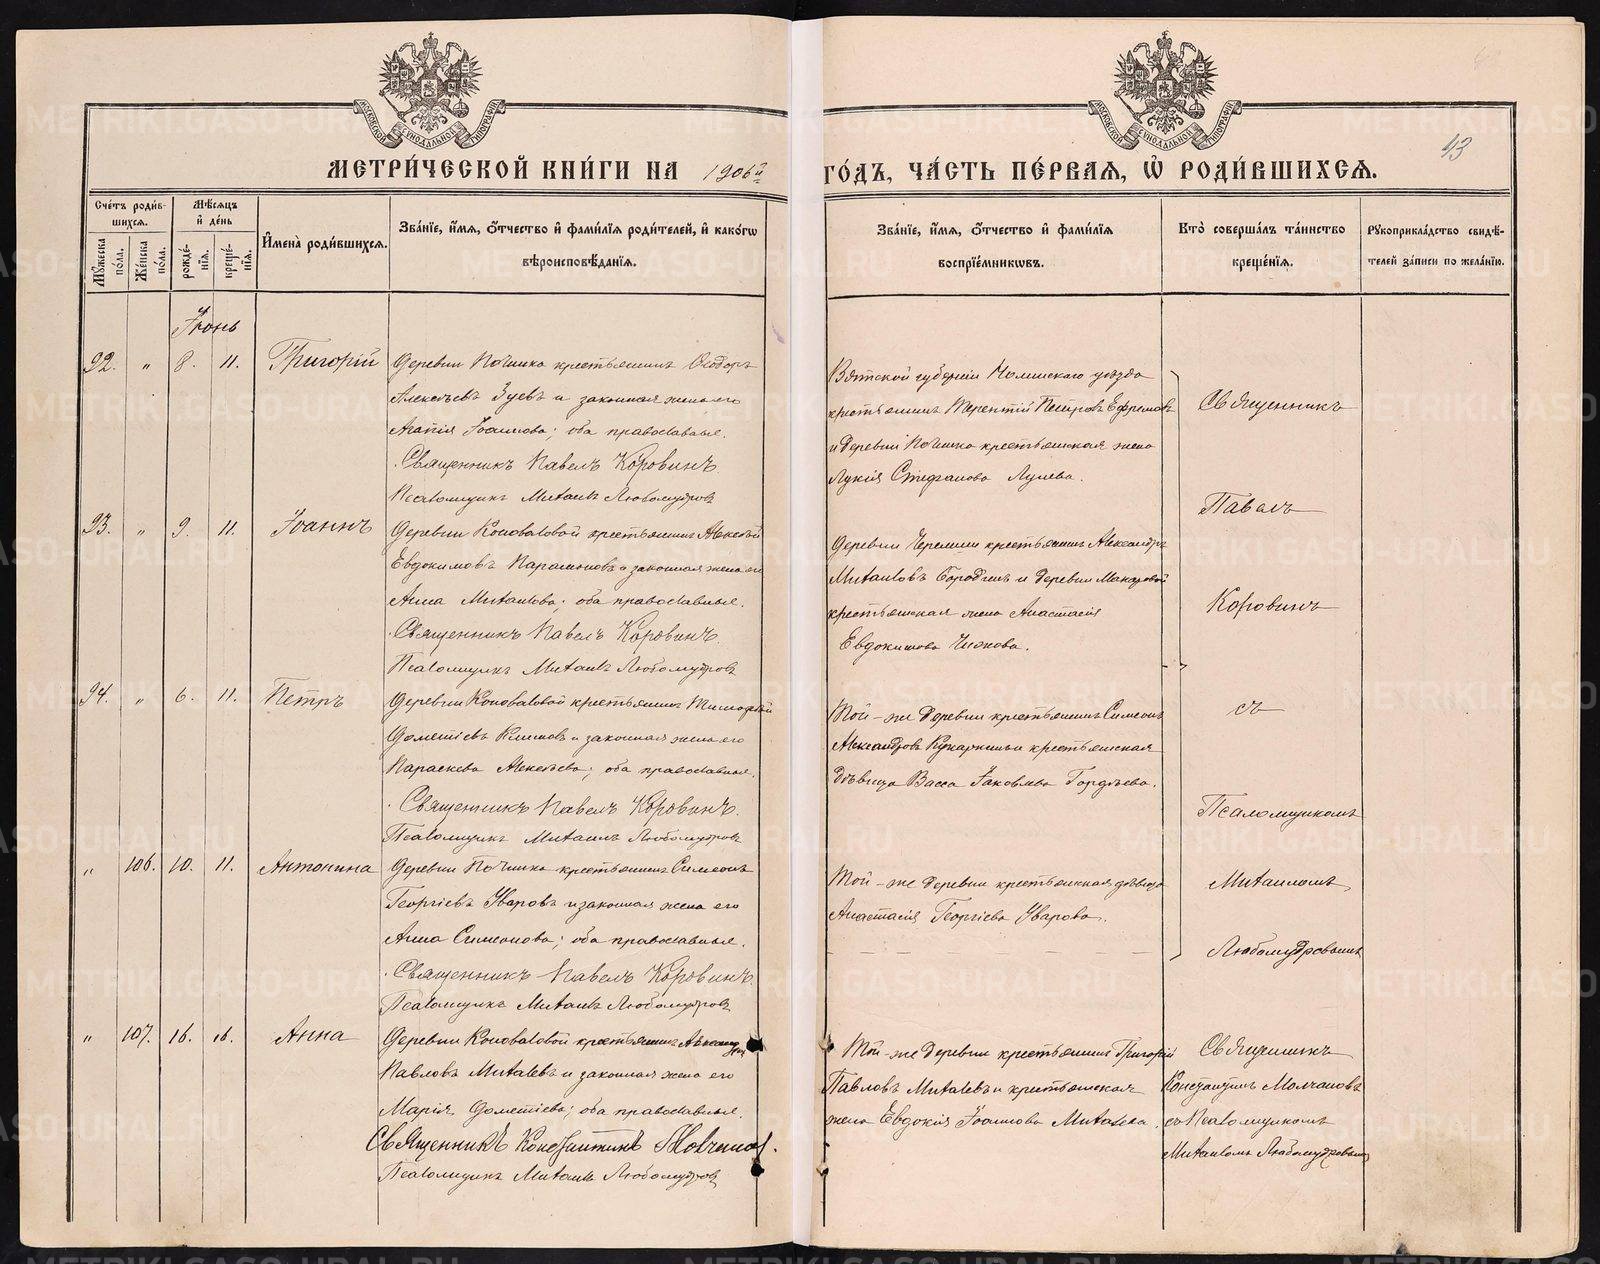 МОСКОВСКОЙ СѴНОДАЛЬНОЙ ТИПОГРАФІИ
МОСКОВСКОЙ СѴНОДАЛЬНОЙ ТИПОГРАФІИ
МЕТРИ́ЧЕСКОЙ КНИ́ГИ НА 1906й ГО́ДЪ, ЧА́СТЬ ПЕ́РВАЯ, Ѡ҆ РОДИ́ВШИХСЯ.
43
Сче́тъ роди́в-
шихся.
Мꙋ́жеска по́ла.
Же́нска по́ла.
Мѣ́сяцъ
и҆ де́нь
рожде́-
нїя.
креще́-
нїя.
И҆мена̀ роди́вшихся.
Зва́нїе, и҆́мя, ѻ҆́тчество и҆ фами́лїя роди́телей, и҆ како́гѡ
вѣроисповѣ́данїя.
Зва́нїе, и҆́мя, ѻ҆́тчество и҆ фами́лїя
воспрїе́мникѡвъ.
Кто̀ соверша́лъ та́инство
креще́нїя.
Рꙋкоприкла́дство свидѣ́-
телей за́писи по жела́нїю.
Іюнь
92. " 8. 11. Григорій
Деревни Починка крестьянинъ Ѳеодоръ
Алексѣевъ Зуевъ и законная жена его
Агапія Іоаннова; оба православные.
Священникъ Павелъ Коровинъ
Псаломщикъ Михаилъ Любомудровъ
Вятской губерніи Нолинскаго уѣзда
крестьянинъ Терентій Петровъ Ефремовъ
и деревни Починка крестьянская жена
Лукія Стефанова
Священникъ
Павелъ
93. " 9. 11. Іоаннъ
Деревни Коноваловой крестьянинъ Алексѣй
Евдокимовъ Парамоновъ и законная жена его
Анна Михайлова; оба православные.
Священникъ Павелъ Коровинъ
Псаломщикъ Михаилъ Любомудровъ
Деревни Черемши крестьянинъ Александръ
Михаиловъ Бородинъ и деревни Макаровой
крестьянская жена Анастасія
Евдокимова
Коровинъ
94. " 6. 11. Петръ
Деревни Коноваловой крестьянинъ Тимофей
Дометіевъ Климовъ и законная жена его
Параскева Алексѣева; оба православные.
Священникъ Павелъ Коровинъ.
Псаломщикъ Михаилъ Любомудровъ
Той-же деревни крестьянинъ Симеонъ
Александровъ Кукаркинъ и крестьянская
дѣвица Васса Іаковлева Гордѣева.
съ
Псаломщикомъ
" 106. 10. 11. Антонина
Деревни Починка крестьянинъ Симеонъ
Георгіевъ Уваровъ и законная жена его
Анна Симеонова; оба православные.
Священникъ Павелъ Коровинъ.
Псаломщикъ Михаилъ Любомудровъ
Той-же деревни крестьянская дѣвица
Анастасія Георгіева Уварова.
Михаиломъ
Любомудровымъ
" 107. 16. 16. Анна
Деревни Коноваловой крестьянинъ Александръ
Павловъ Михалевъ и законная жена его
Марія Дометіева; оба православные.
Священникъ Константинъ Молчанов.
Псаломщикъ Михаилъ Любомудровъ
Той-же деревни крестьянинъ Григорій
Павловъ Михалевъ и крестьянская
жена Евдокія Іоаннова Михалева.
Священникъ
Константинъ Молчановъ
съ Псаломщикомъ
Михаиломъ Любомудровымъ
METRIKI.GASO-URAL.RU